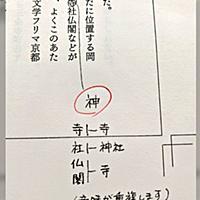 た。
だに位置する岡
社仏閣などが
、よくこのあた
文学フリマ京都
神
寺ト寺
社ト神社
仏
閣ト寺
(意味が重複します)